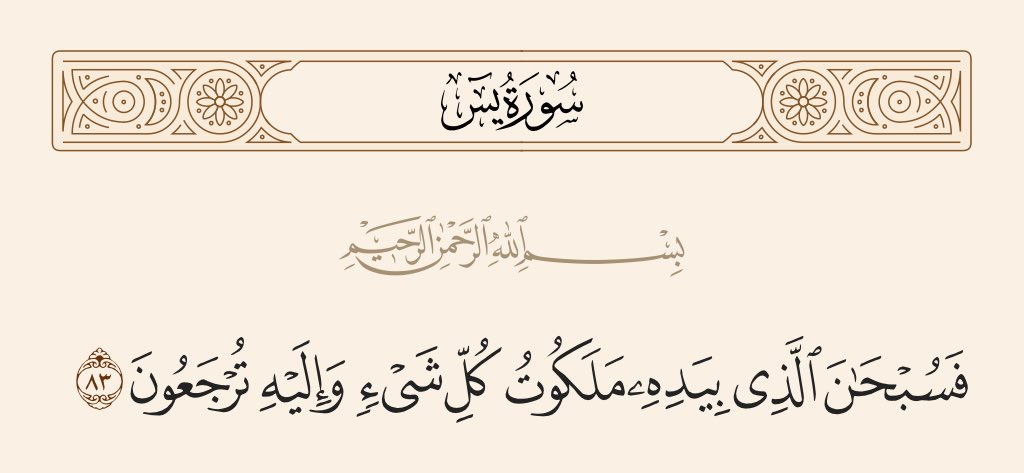 سُورَةُ يسٓ
بِسْمِ ٱللَّهِ ٱلرَّحْمَٰنِ ٱلرَّحِيمِ
فَسُبْحَٰنَ ٱلَّذِى بِيَدِهِۦ مَلَكُوتُ كُلِّ شَىْءٍ وَإِلَيْهِ تُرْجَعُونَ ٨٣